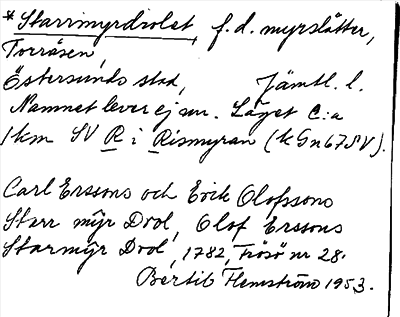 *Starrmyrdrolet, f.d. myrslåtter,
Torråsen,
Östersunds stad, Jämtl. l.
Namnet lever ej nu. Läget C:a
1 km SV R i Rismyran (k Gn67SV).
Carl Erssons och Erik Olofssons
Starr mÿr Drol, Olof Erssons
Starmÿr Drol, 1782, Frösö nr 28.
Bertil Flemström 1953.